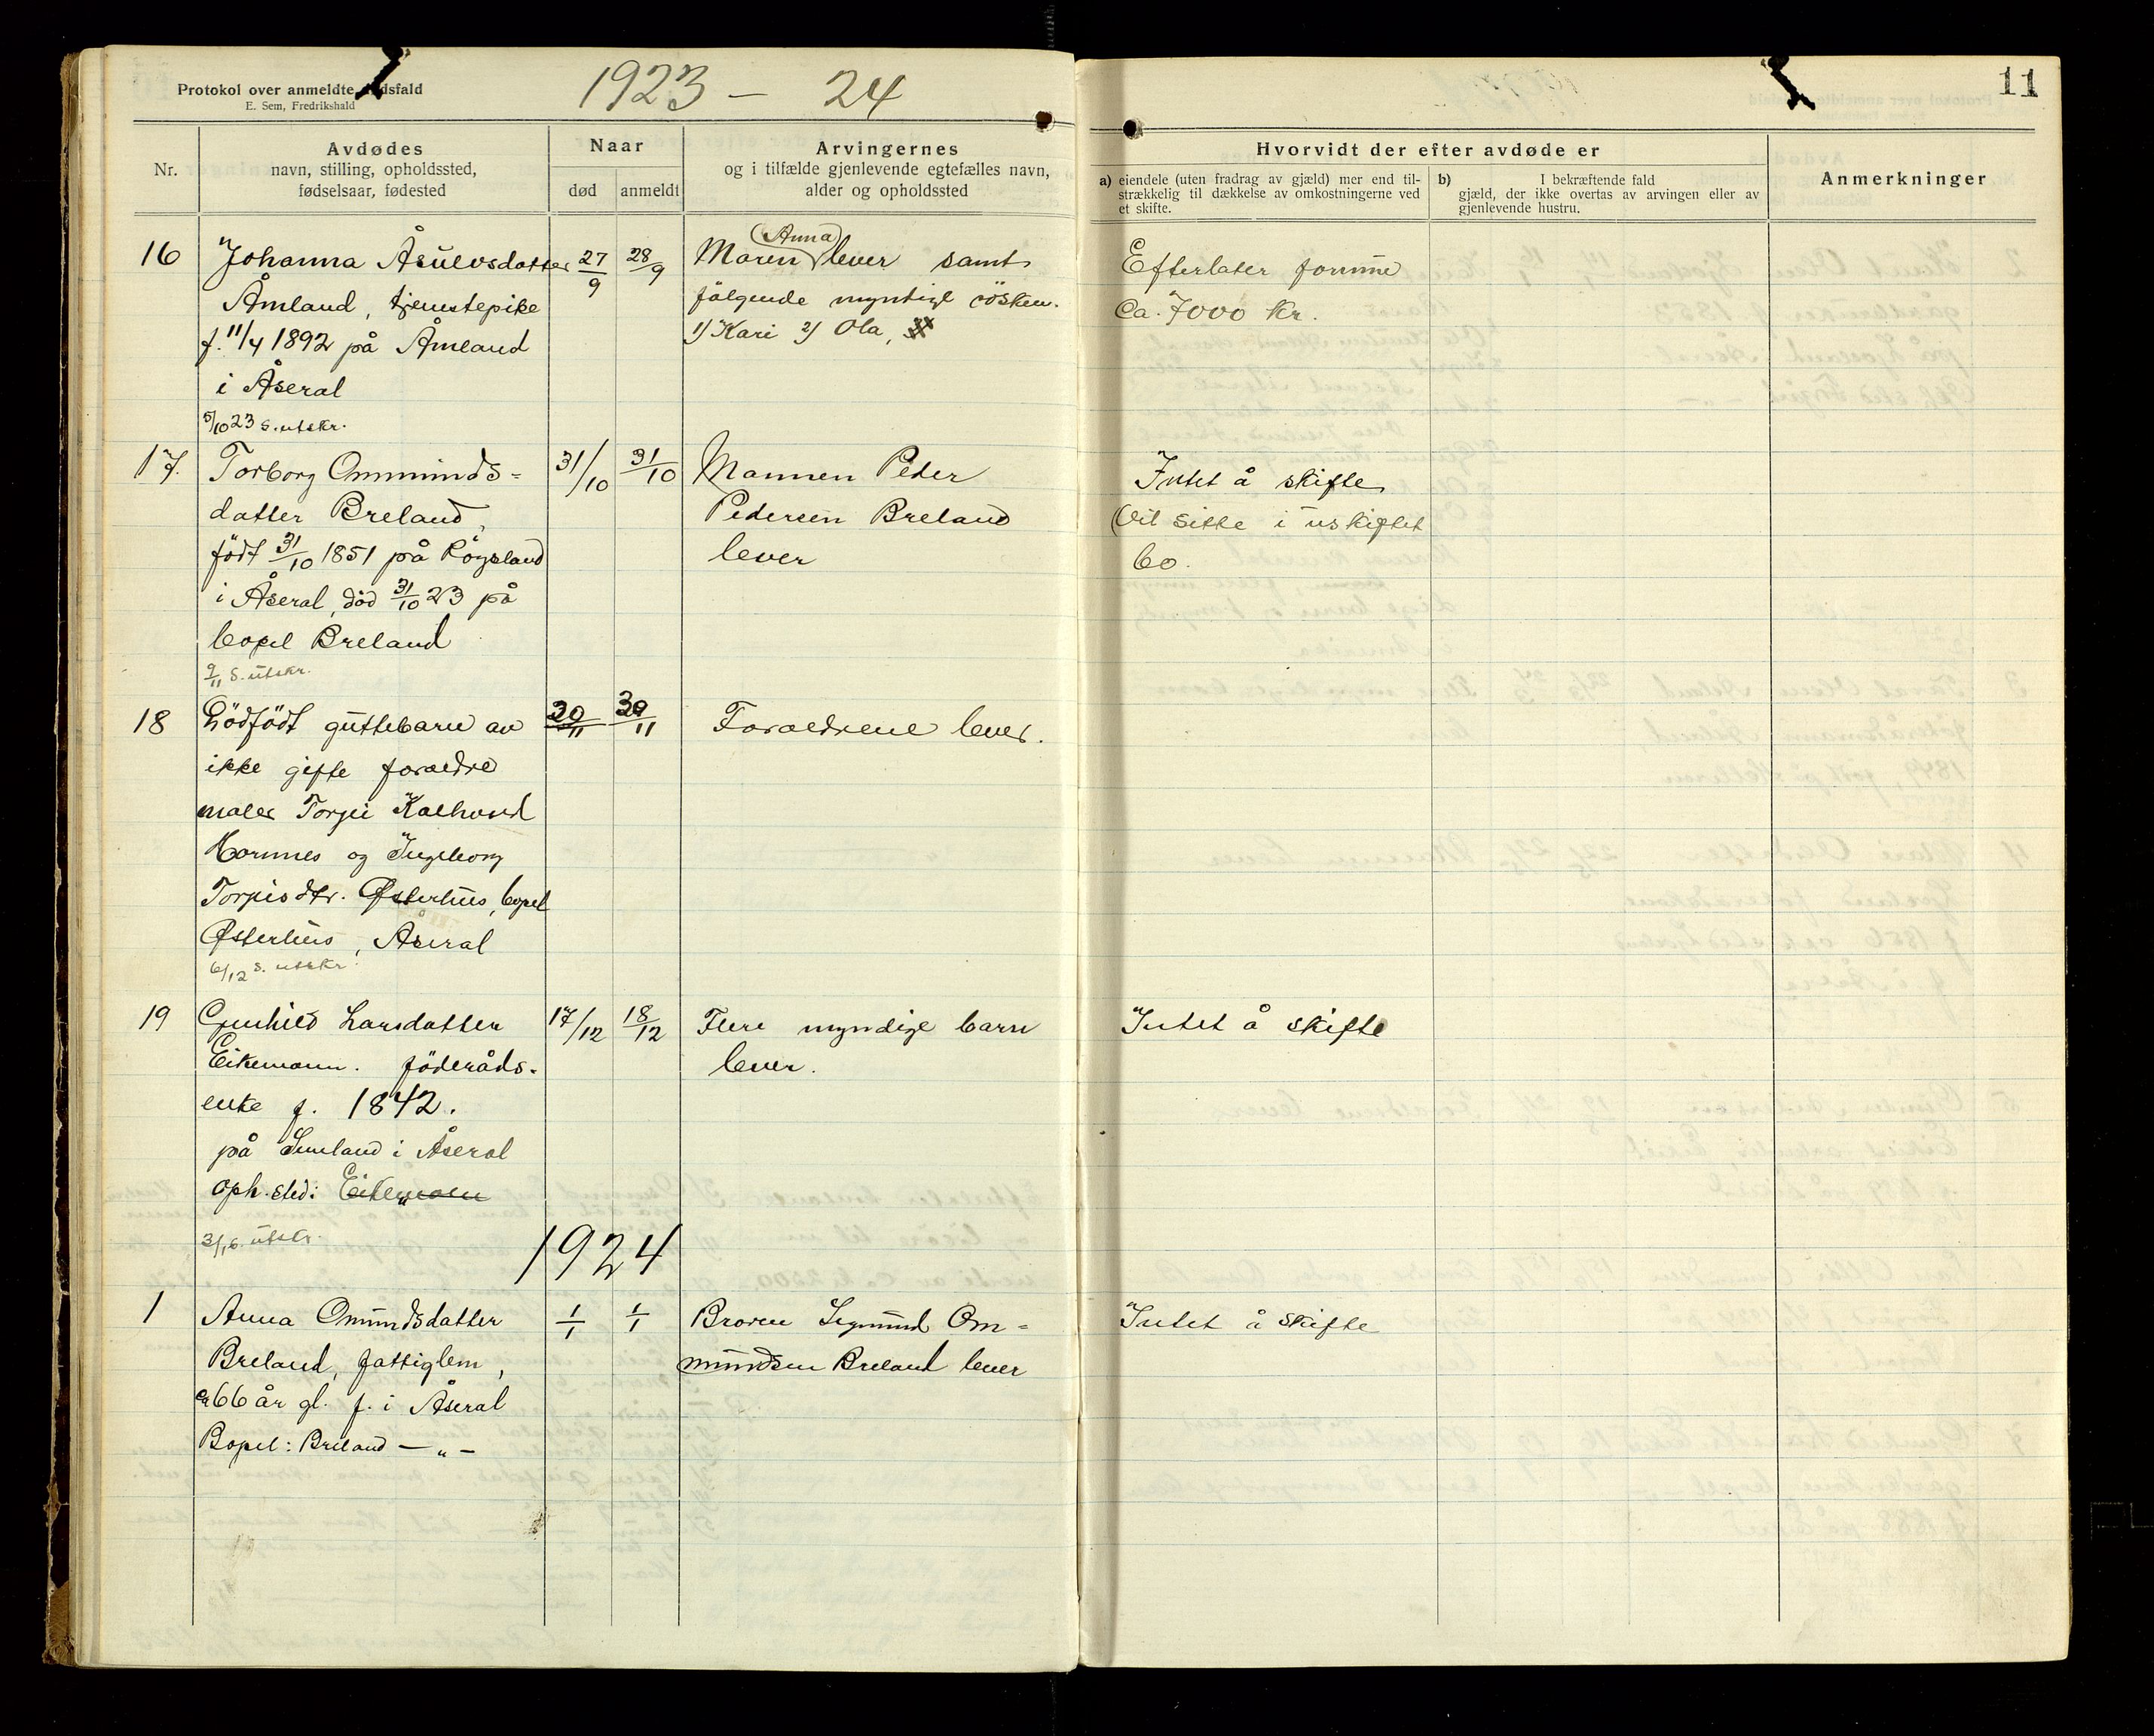 Protokol over anmeldte dødsfald
E. Sem, Fredrikshald
1923 – 24
11
Nr.
Avdødes
navn, stilling, opholdssted,
fødselsaar, fødested
Naar
død
anmeldt
Arvingernes
og i tilfælde gjenlevende egtefælles navn,
alder og opholdssted
Hvorvidt der efter avdøde er
a) eiendele (uten fradrag av gjæld) mer end til-
strækkelig til dækkelse av omkostningerne ved
et skifte.
b) I bekræftende fald
gjæld, der ikke overtas av arvingen eller av
gjenlevende hustru.
Anmerkninger
16
Johanna Åsulvsdatter
Åmland, tjenestepike
f. 11/4 1892 på Åmland
i Åseral
5/10 23 s. utskr.
27/9
28/9
(Anna)
Moren lever samt
følgende myndige cösken.
1) Kari 2) Ola,
Efterlater formue
Ca. 7000 kr.
17.
Torborg Ommunds-
datter Breland,
född 31/10 1851 på Röysland
i Åseral, död 31/10 23 på
bopel Breland
9/11 s. utskr.
31/10
31/10
Mannen Peder
Pedersen Breland
lever
Intet å skifte
(Vil sitte i uskiftet
bo.
18
Dödfödt guttebarn av
ikke gifte foraeldre
maler Torgei
Hornnes og Ingeborg
Torgisdtr. Østerhus, bopel
Østerhus, Åseral
6/12 s. utskr.
30/11
30/11
Foraeldrene lever.
19
Gunhild Larsdatter
Eikemann. föderåds-
enke f. 1842.
på Smeland i Åseral
oph. sted:
3/1 s. utskr.
17/12
18/12
Flere myndige barn
lever.
Intet å skifte
1924
1
Anna Omundsdatter
Breland, fattiglem,
ca 66 år gl. f. i Åseral
Bopel: Breland — „ —
1/1
1/1
Broren Sigmund Om-
mundsen Breland lever
Intet å skifte